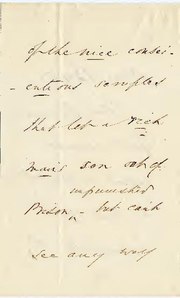 of the nice consci-
-entious scruples
that let a rich
man's son out of
unpunished
Prison, - but can't
see any way